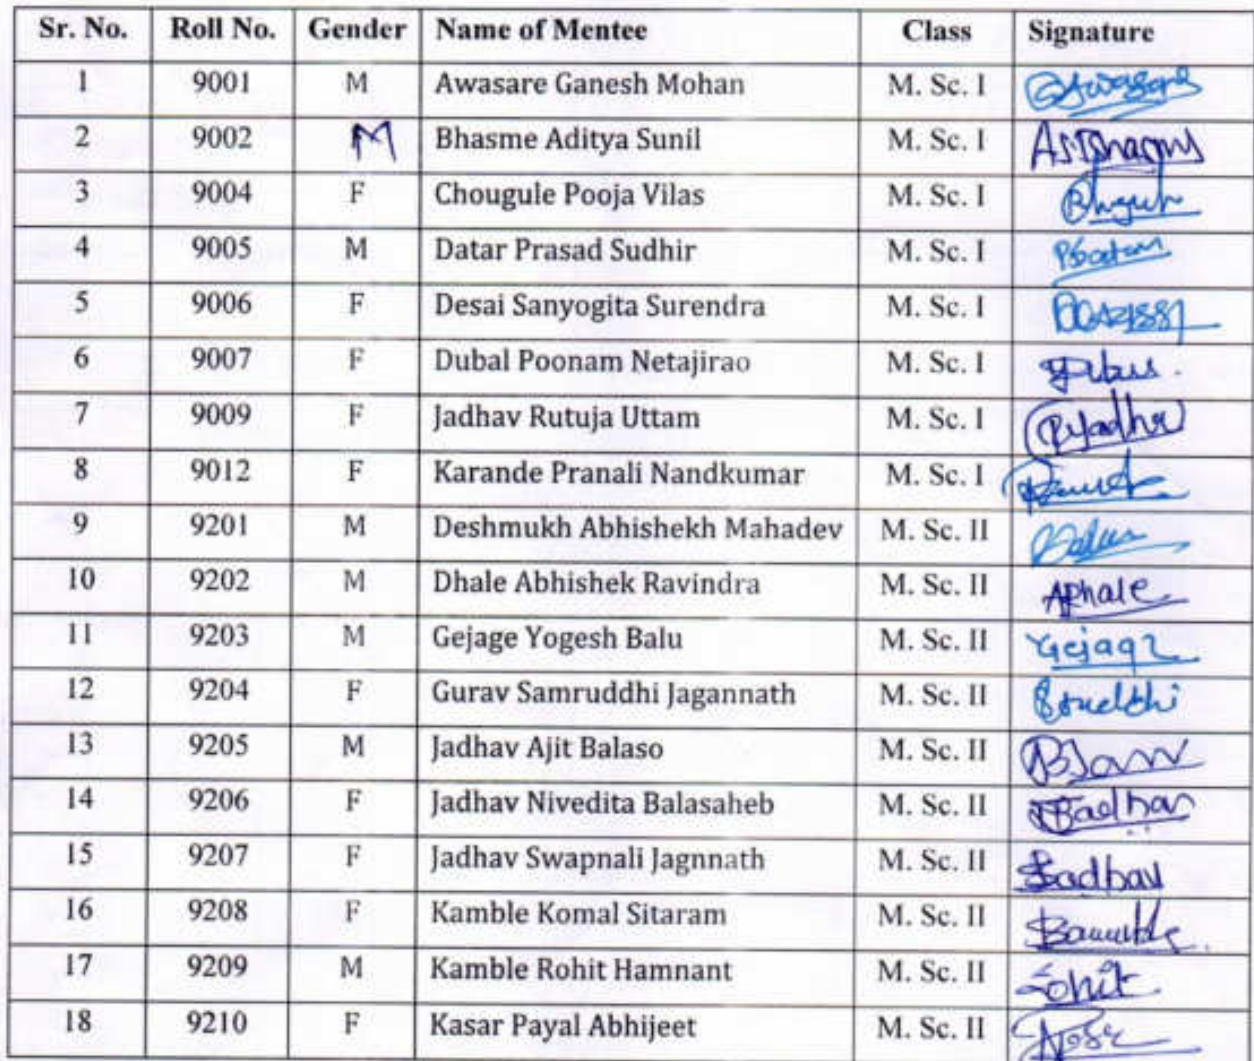 Sr. No. Roll No. Gender Name of Mentee Class Signature
1 9001 M Awasare Ganesh Mohan M. Sc. I GAwasare
2 9002 M Bhasme Aditya Sunil M. Sc. I
3 9004 F Chougule Pooja Vilas M. Sc. I
4 9005 M Datar Prasad Sudhir M. Sc. I
5 9006 F Desai Sanyogita Surendra M. Sc. I
6 9007 F Dubal Poonam Netajirao M. Sc. I
7 9009 F Jadhav Rutuja Uttam M. Sc. I
8 9012 F Karande Pranali Nandkumar M. Sc. I
9 9201 M Deshmukh Abhishekh Mahadev M. Sc. II
10 9202 M Dhale Abhishek Ravindra M. Sc. II ADhale
11 9203 M Gejage Yogesh Balu M. Sc. II Gejage
12 9204 F Gurav Samruddhi Jagannath M. Sc. II
13 9205 M Jadhav Ajit Balaso M. Sc. II
14 9206 F Jadhav Nivedita Balasaheb M. Sc. II
15 9207 F Jadhav Swapnali Jagnnath M. Sc. II
16 9208 F Kamble Komal Sitaram M. Sc. II
17 9209 M Kamble Rohit Hamnant M. Sc. II Rohit
18 9210 F Kasar Payal Abhijeet M. Sc. II